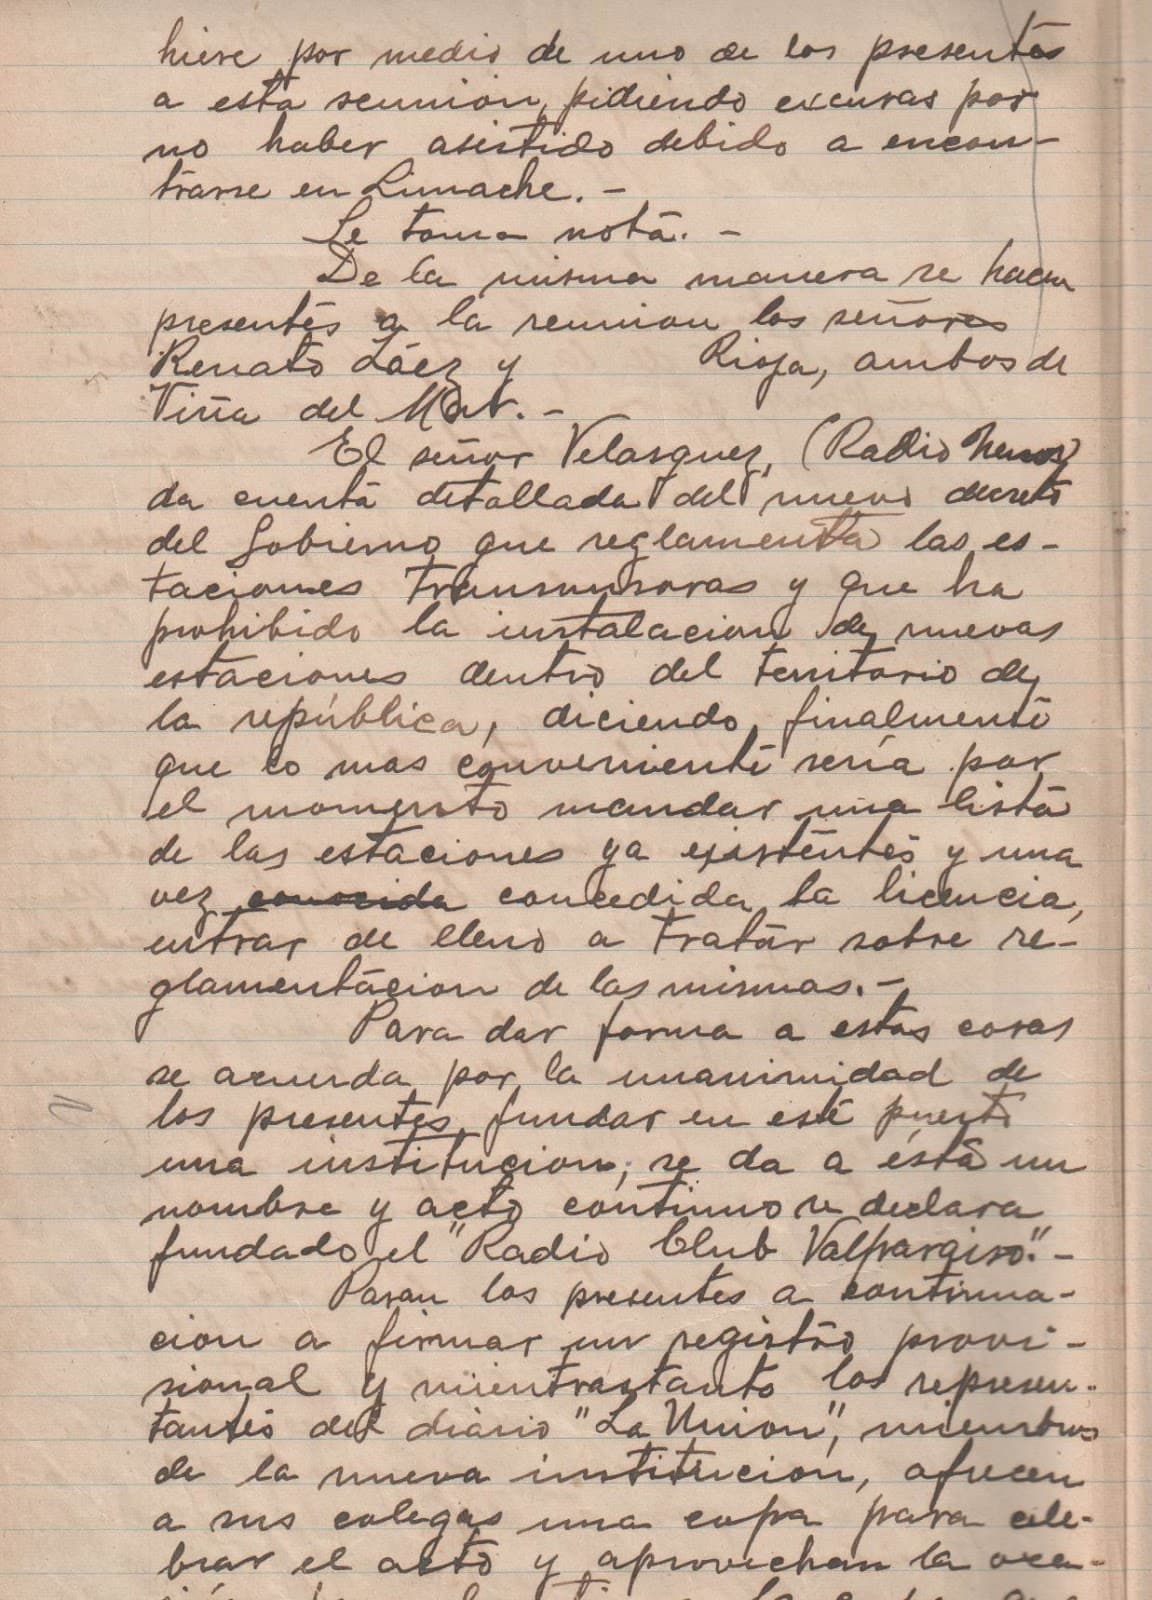 hiere por medio de uno de los presentes
a esta reunion, pidiendo excusas por
no haber asistido debido a encon-
trarse en Limache. -
Se toma nota. -
De la misma manera se hacen
presentes a la reunion los señores
Renato Láez y Rioja, ambos de
Viña del Mar. -
El señor Velasquez, (Radio
da cuenta detallada del nuevo decreto
del Gobierno que reglamenta las es-
taciones transmisoras y que ha
prohibido la instalacion de nuevas
estaciones dentro del territorio de
la república, diciendo finalmente
que lo mas conveniente sería por
el momento mandar una lista
de las estaciones ya existentes y una
vez conocida concedida la licencia,
entrar de lleno a tratar sobre re-
glamentacion de las mismas. -
Para dar forma a estas cosas
se acuerda por la unanimidad de
los presentes fundar en este puerto
una institucion; se da a ésta un
nombre y acto continuo se declara
fundado el "Radio Club Valparaiso". -
Pasan los presentes a continua-
cion a firmar un registro provi-
sional y mientrastanto los represen-
tantes del diario "La Union", miembros
de la nueva institucion, ofrecen
a sus colegas una copa para cele-
brar el acto y aprovechan la oca-